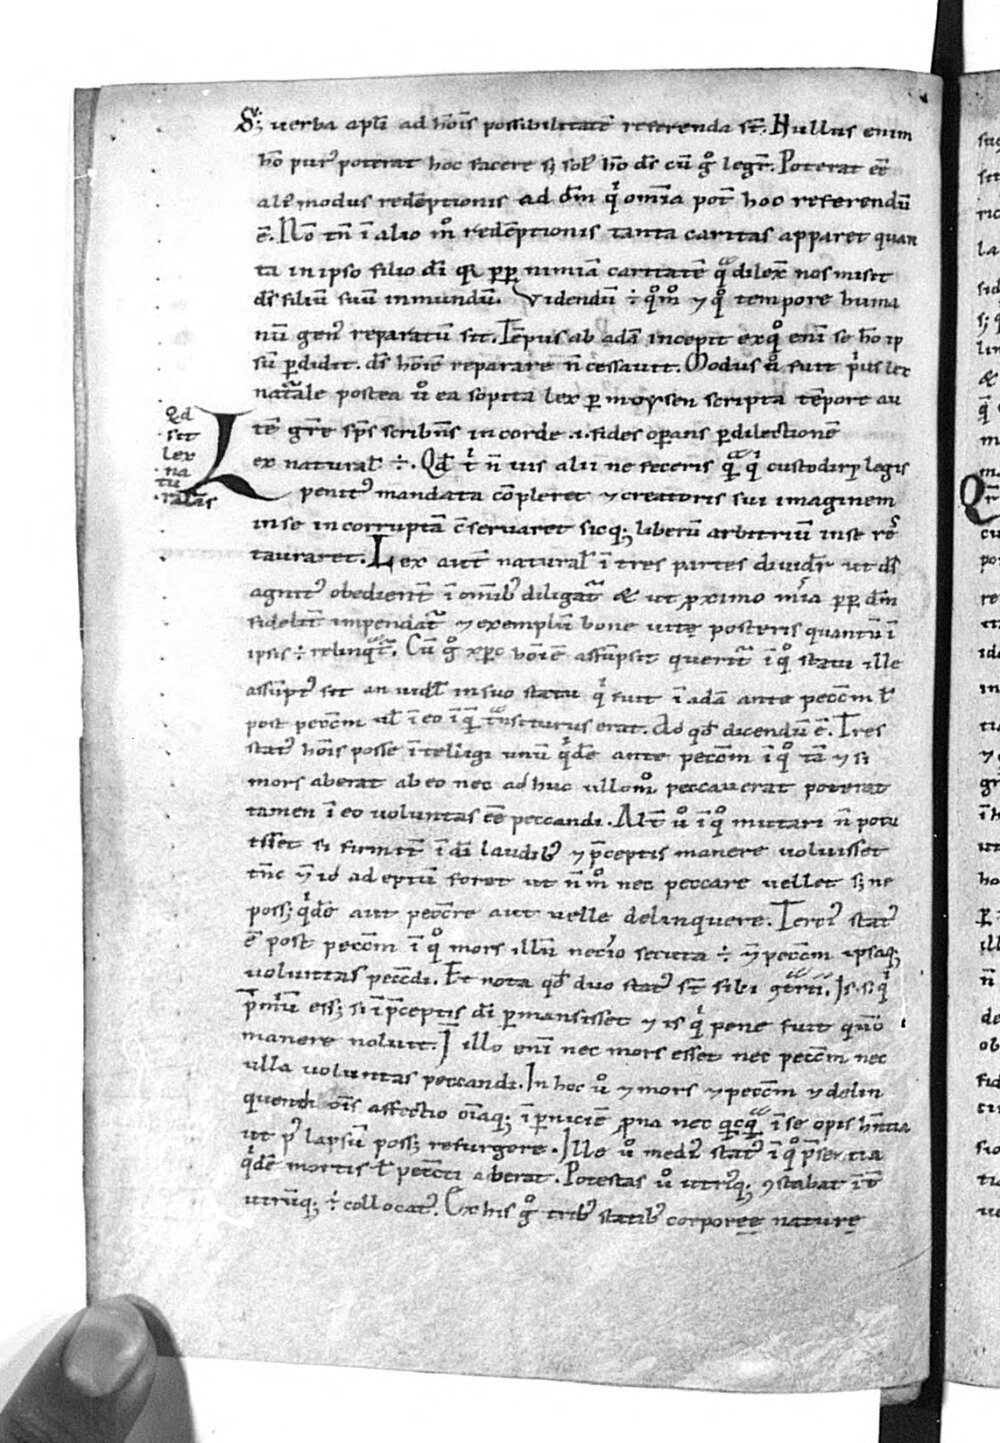 S; uerba apl̄i ad hōis possibilitatē referenda st̄. Nullus enim
hō purꝰ poterat hoc facere sꝫ solꝰ hō dꝰ cū gͦ legr̄. Poterat eē
alꝰ modus redēptionis ad dm̄ qͥ om̄ia pot̄ hoc referendū
ē. Nō tn̄ ī alio mͦ redēptionis tanta caritas apparet quan
ta in ipso filio dī qꝛ ꝓp nimiā caritatē qͣ dilex̄ nos misit
ds̄ filiū suū in mundū. Videndū ÷ qͦmͦ ⁊ qͦ tempore huma
nū genꝰ reparatū sit. Tēpus ab adā incepit ex qͦ enī se hō ip
sū ꝑdidit. ds̄ hōiē reparare n̄ cessauit. Modus uͦ fuit pͥus lex
nat̄ale postea uͦ ea sopita lex ꝑ moysen scripta tēpore au
Qd
sit
lex
na
tu
ralis
tē gr̄e sp̄s scribn̄s in corde .i. fides oꝑans ꝑ dilectionē
Lex naturalꝰ ÷. Qd̄ tͥ n̄ uis alii ne feceris qͣ qͥ custodirꝫ legis
penitꝰ mandata cōpleret ⁊ creatoris sui imaginem
in se incorruptā c̄seruaret sicq; liberū arbitriū in se res
tauraret. Lex aut̄ naturalꝰ ī tres partes diuidr̄ ut ds̄
agnitꝰ obedient̄ ī om̄ibꝰ diligat̄ & ut ꝓximo mīa ꝓp dm̄
fidelit̄ impendat̄ ⁊ exemplū bone uite posteris quantū ī
ipsis ÷ relinqͣt̄. Cū gͦ xp̄c hōiē assūpsit querit̄ ī qͦ statu ille
assūptꝰ sit an uidl̄ in suo statu qͥ fuit ī adā ante pecc̄m ł
post pecc̄m ul̄ ī eo ī qͣ tn̄siturus erat. Ad qd̄ dicendū ē. Tres
statꝰ hōis posse ītelligi unū qͥdē ante pecc̄m ī qͦ tā ⁊ si
mors aberat ab eo nec adhuc ullo mͦ peccauerat poterat
tamen ī eo uoluntas eē peccandi. Alt̄ uͦ ī qͦ mutari n̄ potu
isset si firmit̄ ī dī laudibꝰ ⁊ p̄ceptis manere uoluisset
tn̄c ⁊ id adeptū foret ut n̄ mͦ nec peccare uellet sꝫ ne
possꝫ qͥdē aut pecc̄re aut uelle delinquere. Terciꝰ statꝰ
ē post pecc̄m ī qͦ mors illū necͦio secuta ÷ ⁊ pecc̄m ipsaq;
uoluntas pecc̄di. Et nota qd̄ duo statꝰ st̄ sibi
p̄miū essꝫ si ī p̄ceptis dī ꝑmansisset ⁊ is qͥ pene fuit
manere noluit. I illo enī nec mors esset nec pecc̄m nec
ulla uoluntas peccandi. In hoc uͦ ⁊ mors ⁊ pecc̄m ⁊ delin
quendi ōis affectio ōiaq; ī ꝑniciē ꝓna nec ī se opis
ut pꝰ lapsū possꝫ resurgere. Ille uͦ mediꝰ statꝰ ī qͦ p̄sentia
qͥdē mortis ł pecc̄ti aberat. Potestas uͦ utriꝰq; 9stabat
utrūq; ÷ collocatꝰ. Ex his gͦ tribꝰ statibꝰ corporeę naturę